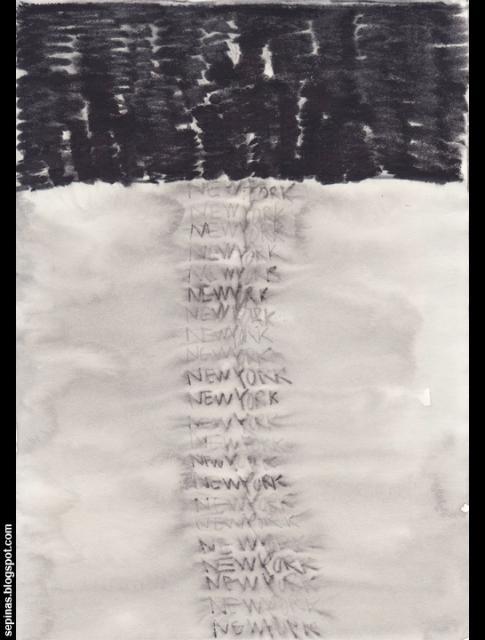 NEW YORK
NEW YORK
NEW YORK
NEW YORK
NEW YORK
NEWYRK
NEW YORK
NEW YORK
NEW YORK
NEW YORK
NEW YORK
NEW YORK
NEW YORK
NEW YORK
NEW YORK
NEW YORK
NEW YORK
NEW YORK
NEW YORK
NEW YORK
NEW YORK
NEW YORK
sepinas.blogspot.com